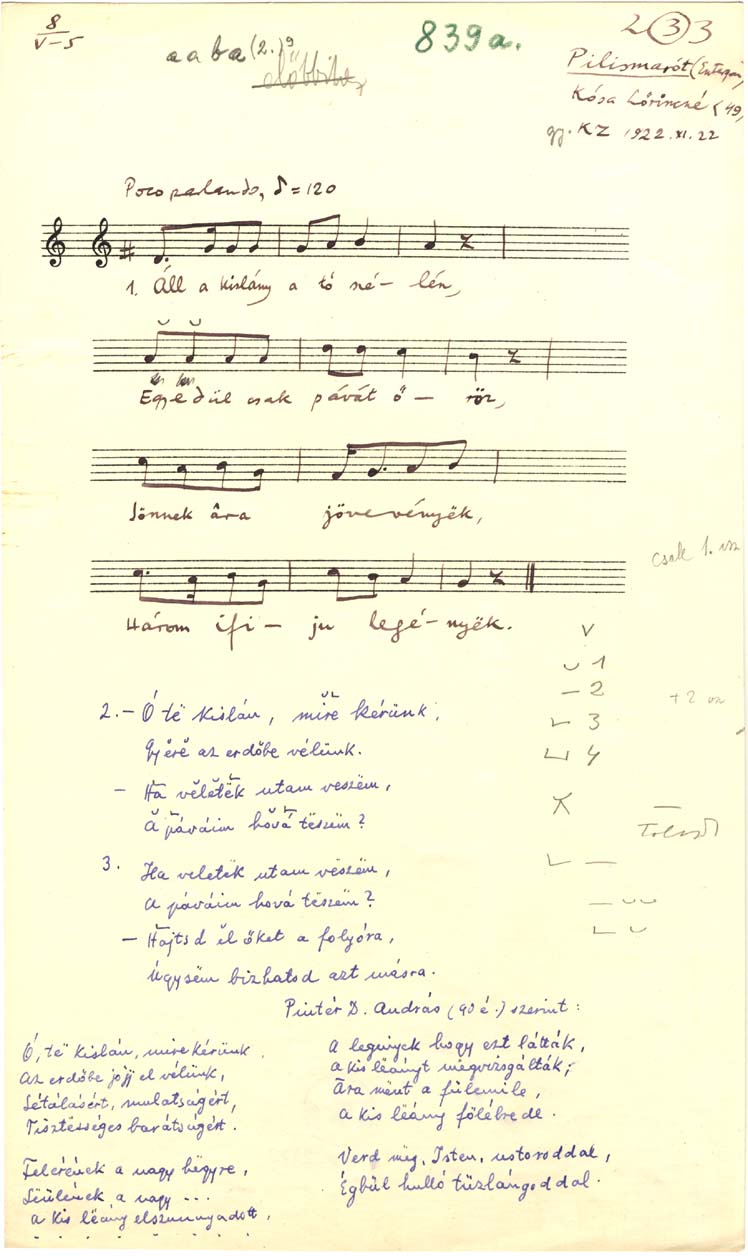 8
V-5
a a b a (2.) 9
előbbihez
839a.
2 3 3
Pilismarót (Esztergom)
Kósa Lőrincné (49)
gy. KZ 1922. XI. 22
Poco parlando, ♪ = 120
1. Áll a kislány a tó né – lén,
Egyedül csak pávát ő – röz,
Jönnek âra jövevényëk,
Három ifi – ju legé – nyëk.
csak 1. vsz
V
1
2
3
4
+ 2 vsz
2. – Ó të kislán, mire kérünk,
Gyërë az erdőbe vélünk.
– Ha vëletëk utam veszëm,
A páváim hová tëszëm?
3. Ha veletëk utam vëszëm,
A páváim hová tëszëm?
– Hajtsd ël őket a folyóra,
Úgysëm bizhatod azt másra.
Pintér D. András (90 é.) szerint:
Ó, të kislán, mire kérünk,
Az erdőbe jőjj el vélünk,
Sétálásért, mulatságért,
Tisztëssëges barátságért.
Felérének a nagy hëgyre,
Leülének a nagy ...
A kis lëány elszunnyadott,
. . . . . . . .
A leginyek hogy ezt látták,
A kis lëányt megvizsgálták;
Âra mënt a fülemile,
A kis lëány fölébrede.
Verd mëg, Isten, ustoroddal,
Égbül hulló tüzlángoddal.